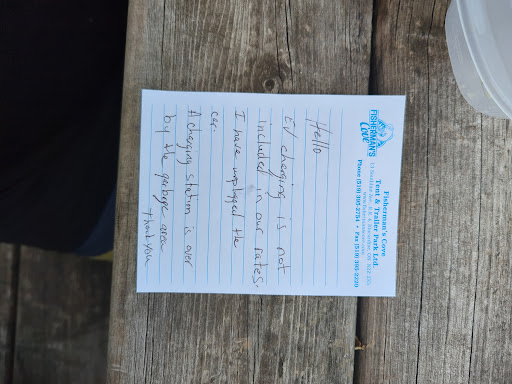 FISHERMAN'S
Cove
Fisherman's Cove
Tent & Trailer Park Ltd.
Phone (519) 395-2757 • Fax (519) 395-2220
Hello
EV charging is not
included in our rates.
I have unplugged the
car.
A charging station is over
by the garbage area
thank you